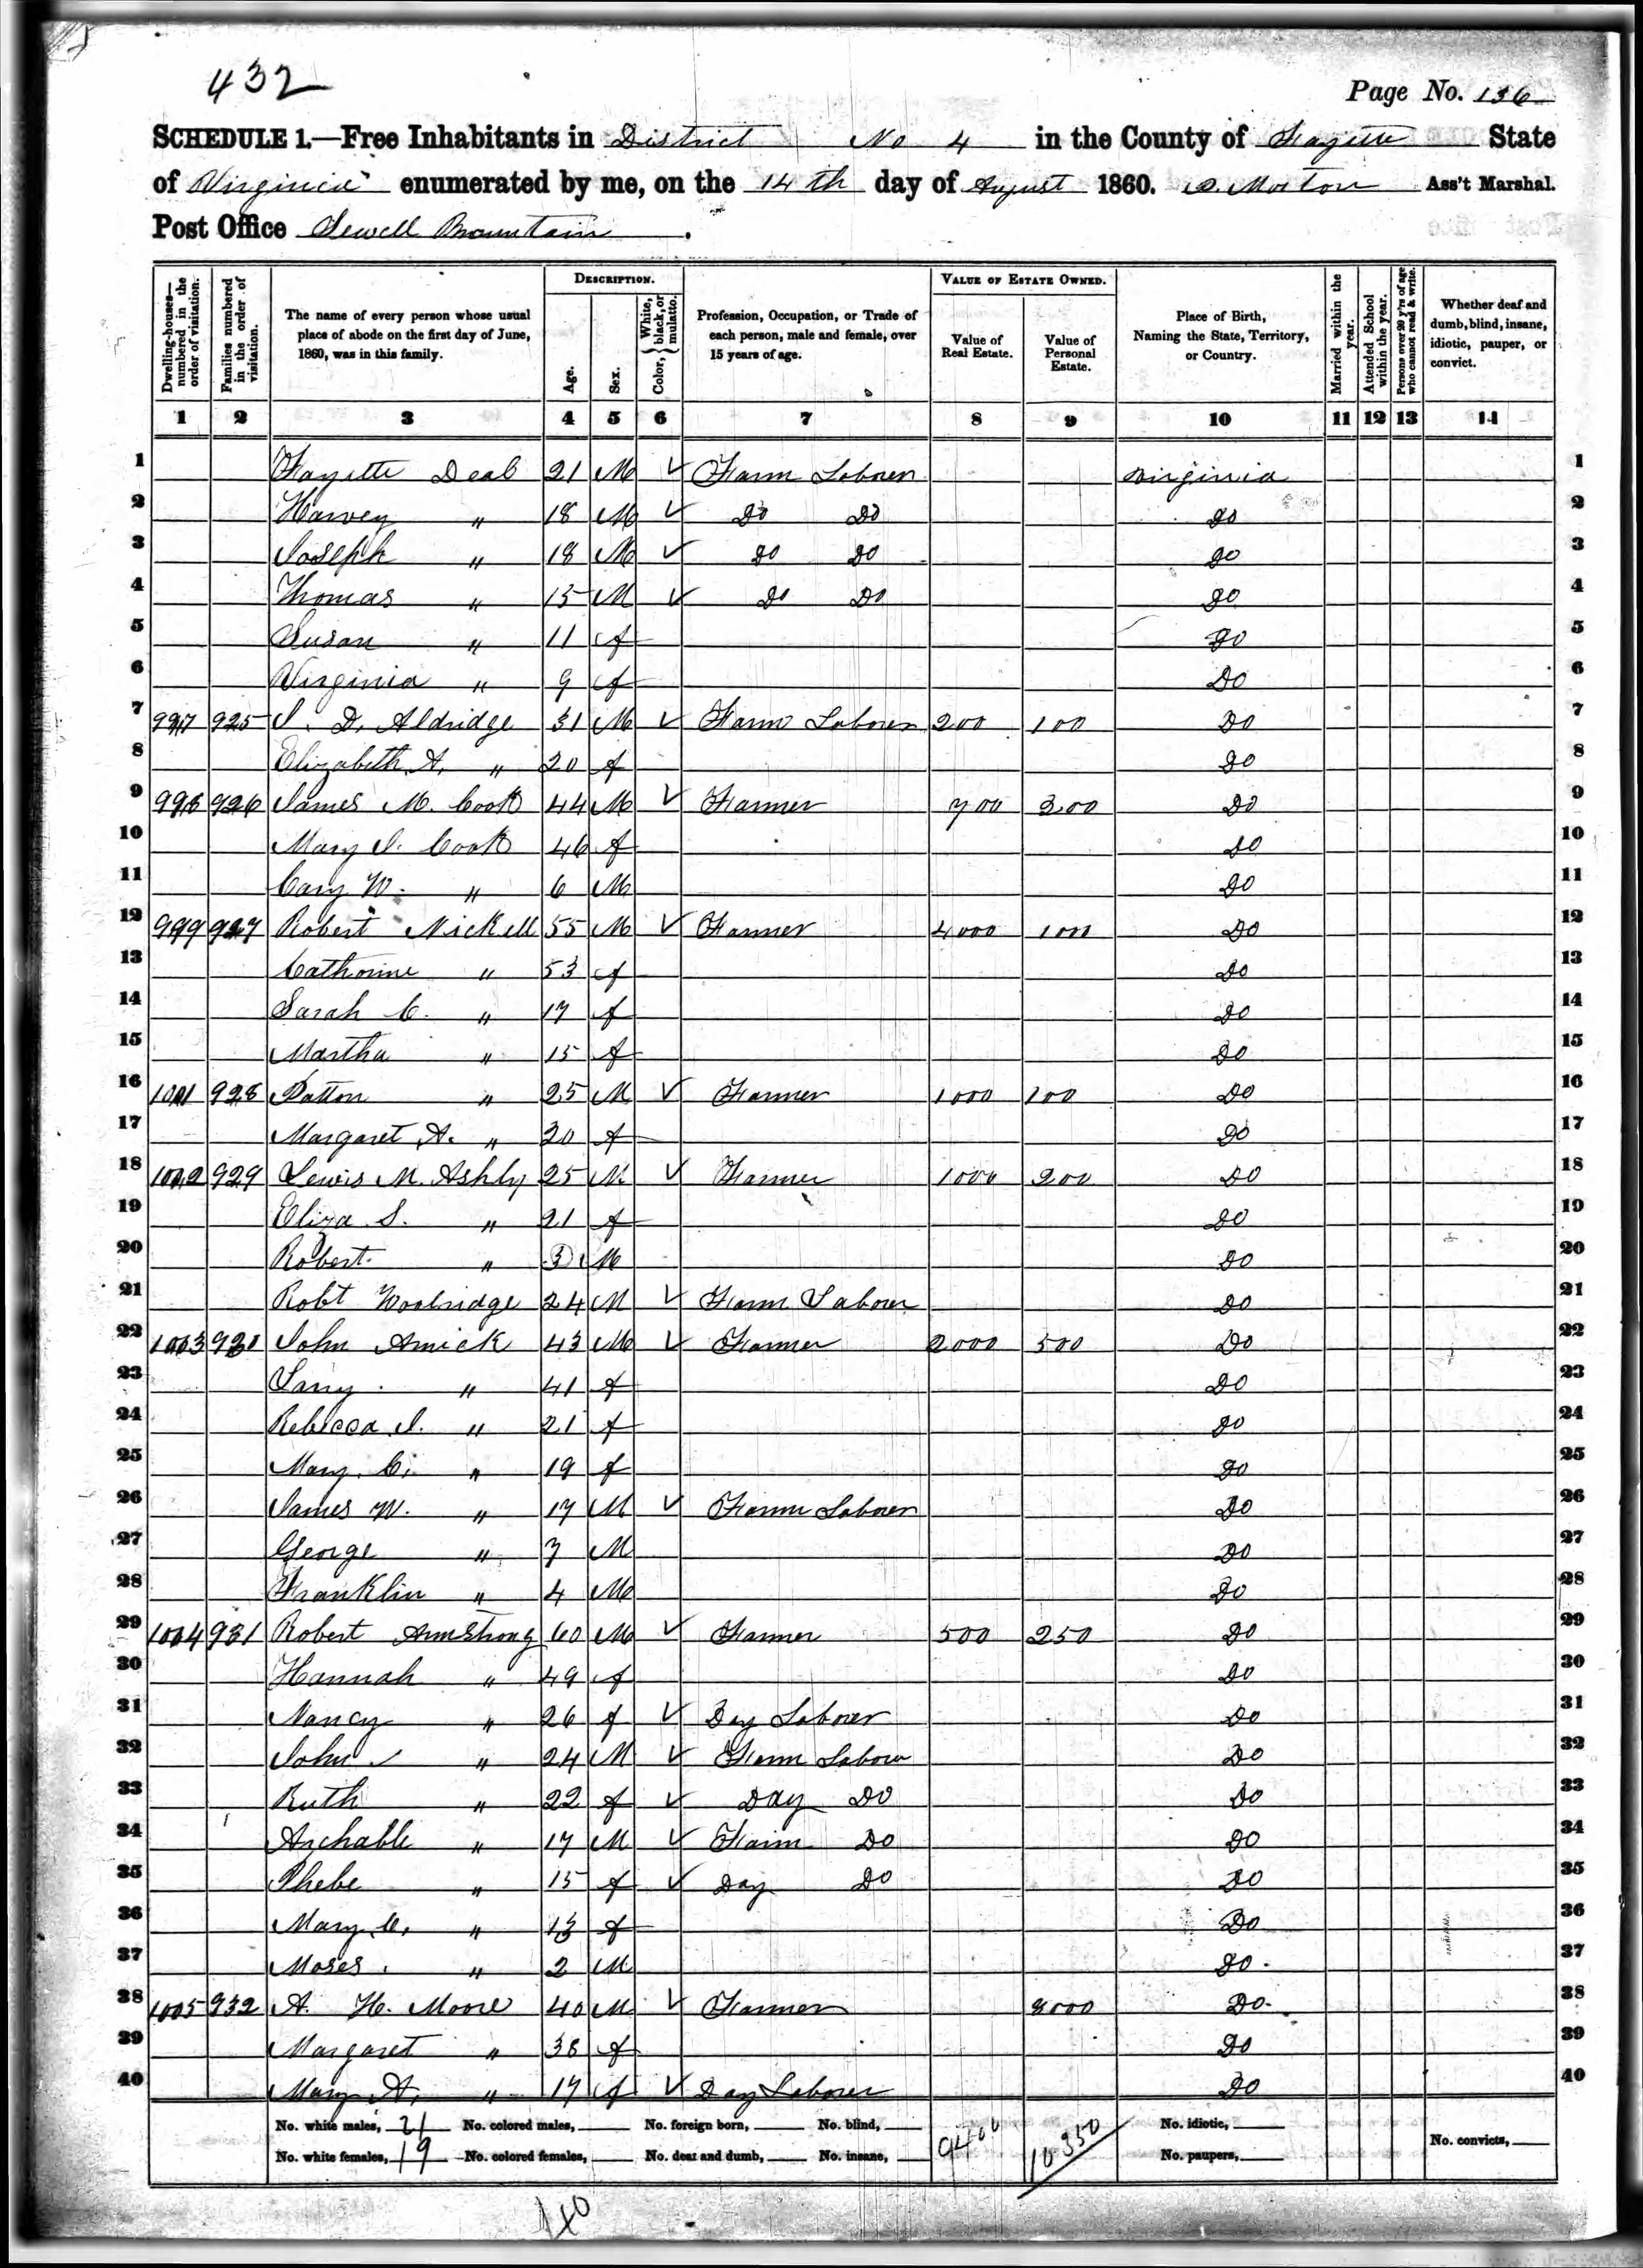 432
Page No. 136
SCHEDULE 1.—Free Inhabitants in District No 4 in the County of Fayette State
of Virginia enumerated by me, on the 14th day of August 1860. Morton Ass't Marshal.
Post Office Sewell Mountain.
Dwelling-houses—numbered in the order of visitation.
Families numbered in the order of visitation.
The name of every person whose usual place of abode on the first day of June, 1860, was in this family.
DESCRIPTION.
Age.
Sex.
Color, { White, black, or mulatto.
Profession, Occupation, or Trade of each person, male and female, over 15 years of age.
VALUE OF ESTATE OWNED.
Value of Real Estate.
Value of Personal Estate.
Place of Birth, Naming the State, Territory, or Country.
Married within the year.
Attended School within the year.
Persons over 20 y'rs of age who cannot read & write.
Whether deaf and dumb, blind, insane, idiotic, pauper, or convict.
1 2 3 4 5 6 7 8 9 10 11 12 13 14
1 Fayette Deal 21 M ✓ Farm Laborer Virginia 1
2 Harvey " 18 M ✓ Do Do Do 2
3 Joseph " 18 M ✓ Do Do Do 3
4 Thomas " 15 M ✓ Do Do Do 4
5 Susan " 11 f Do 5
6 Virginia " 9 f Do 6
7 997 925 J. D. Aldridge 31 M ✓ Farm Laborer 200 100 Do 7
8 Elizabeth A. " 20 f Do 8
9 998 926 James M. Cook 44 M ✓ Farmer 700 300 Do 9
10 Mary J. Cook 46 f Do 10
11 Cary W. " 6 M Do 11
12 999 927 Robert Nickell 55 M ✓ Farmer 4000 1000 Do 12
13 Cathorine " 53 f Do 13
14 Sarah C. " 17 f Do 14
15 Martha " 15 f Do 15
16 1001 928 Patton " 25 M ✓ Farmer 1000 100 Do 16
17 Margaret A. " 20 f Do 17
18 1002 929 Lewis M. Ashly 25 M ✓ Farmer 1000 200 Do 18
19 Eliza S. " 21 f Do 19
20 Robert " 3 M Do 20
21 Robt Woolridge 24 M ✓ Farm Labour Do 21
22 1003 930 John Amick 43 M ✓ Farmer 2000 500 Do 22
23 " 41 f Do 23
24 Rebecca J. " 21 f Do 24
25 Mary C. " 19 f Do 25
26 James W. " 17 M ✓ Farm Laborer Do 26
27 George " 7 M Do 27
28 Franklin " 4 M Do 28
29 1004 931 Robert Armstrong 60 M ✓ Farmer 500 250 Do 29
30 Hannah " 49 f Do 30
31 Nancy " 26 f ✓ Day Laborer Do 31
32 John " 24 M ✓ Farm Labour Do 32
33 Ruth " 22 f ✓ Day Do Do 33
34 Archable " 17 M ✓ Farm Do Do 34
35 Phebe " 15 f ✓ Day Do Do 35
36 Mary C. " 13 f Do 36
37 Moses " 2 M Do 37
38 1005 932 A. H. Moore 40 M ✓ Farmer 8000 Do 38
39 Margaret " 38 f Do 39
40 Mary A. " 17 f ✓ Day Laborer Do 40
No. white males, 21 No. colored males, No. foreign born, No. blind, 9400 10350 No. idiotic,
No. white females, 19 No. colored females, No. deaf and dumb, No. insane, No. paupers, No. convicts,
40